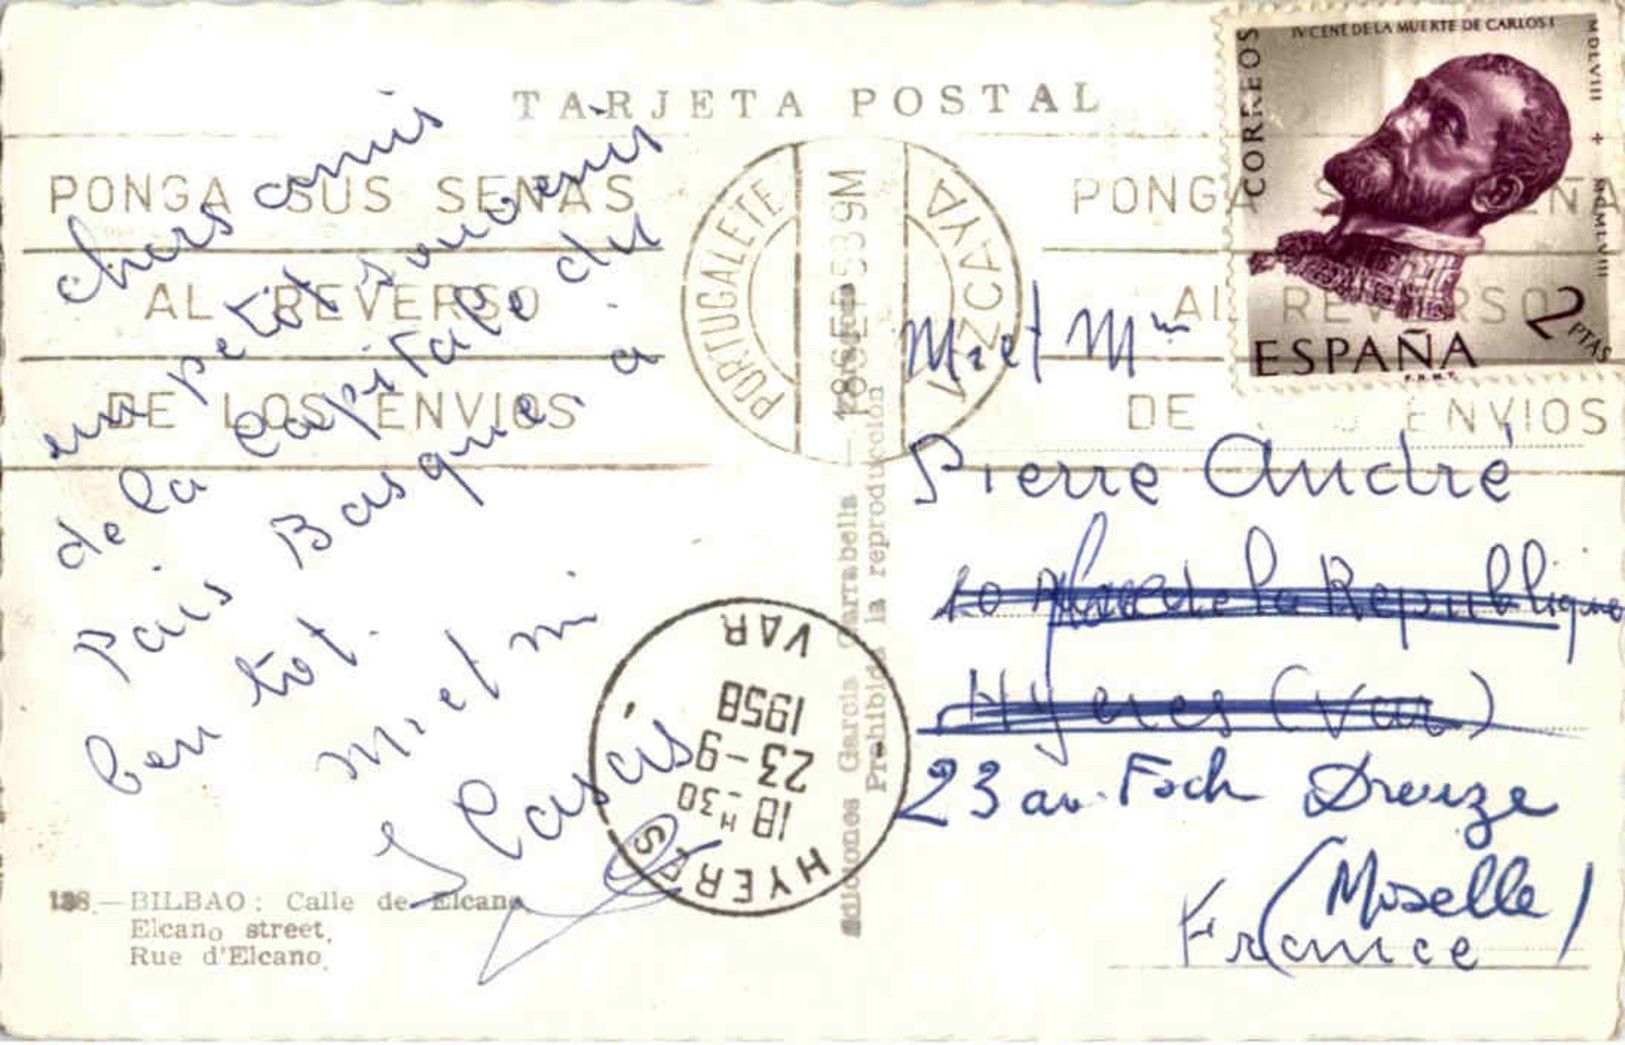 TARJETA POSTAL
IV CENT DE LA MUERTE DE CARLOS I
MDLVIII + MCMLVIII
CORREOS
2 PTAS
ESPAÑA
F.N.M.T.
PONGA SUS SEÑAS
AL REVERSO
DE LOS ENVIOS
PORTUGALETE
VIZCAYA
PONGA S EÑA
AL REVERSO
DE ENVIOS
chers amis
un petit souvenir
de la Capitale du
Pais Basque. a
ben tot.
Mr et Mme
Pierre André
10 Place de la Republique
Hyeres (Var)
23 av. Foch Dreuze
(Moselle)
France
HYERES
18 H 30
23 - 9
1958
VAR
Ediciones Garcia Garrabella
Prohibida la reproducción
138.—BILBAO: Calle de Elcano
Elcano street.
Rue d'Elcano.